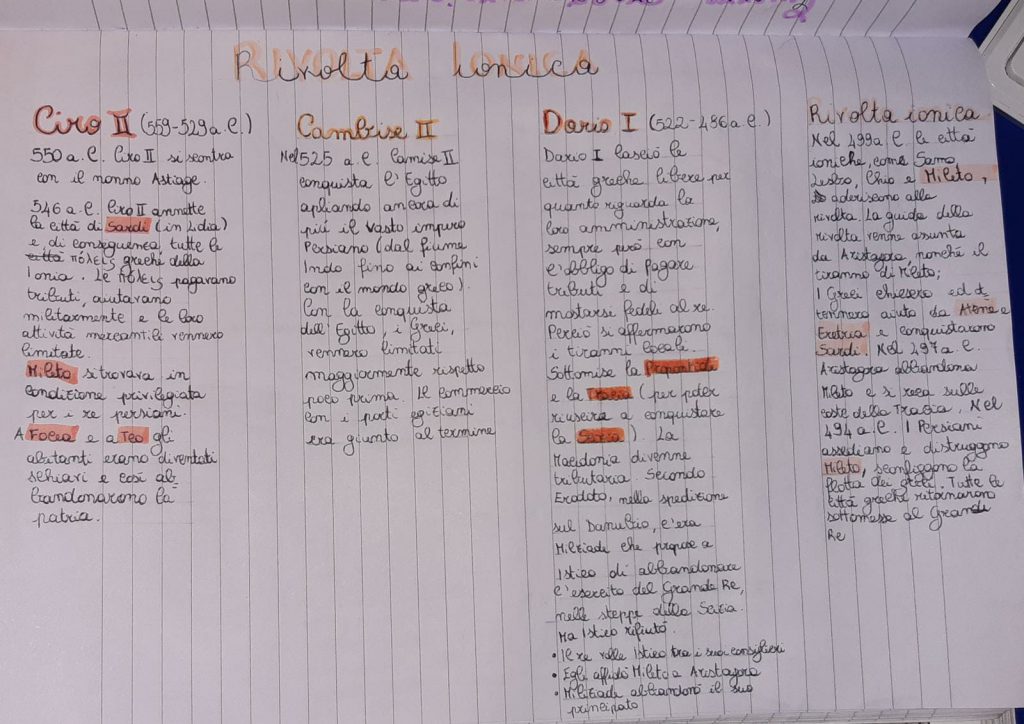 Rivolta ionica
Ciro II (559-529 a.C.)
550 a.C. Ciro II si scontra
con il nonno Astiage.
546 a.C. Ciro II annette
la città di Sardi (in Lidia)
e di conseguenza tutte le
città πόλεις greche della
Ionia. Le πόλεις pagavano
tributi, aiutavano
militarmente e le loro
attività mercantili vennero
limitate.
Mileto si trovava in
condizione privilegiata
per i re persiani.
A Focea e a Teo gli
abitanti erano diventati
schiavi e così ab-
bandonarono la
patria.
Cambise II
Nel 525 a.C. Camise II
conquista l'Egitto
apliando ancora di
più il vasto impero
Persiano (dal fiume
Indo fino ai confini
con il mondo greco).
Con la conquista
dell'Egitto, i Greci,
vennero limitati
maggiormente rispetto
poco prima. Il commercio
con i porti egiziani
era giunto al termine
Dario I (522-486 a.C.)
Dario I lasciò le
città greche libere per
quanto riguarda la
loro amministrazione,
sempre però con
l'obbligo di pagare
tributi e di
mostarsi fedeli al re.
Perciò si affermarono
i tiranni locali.
Sottomise la Propontide
e la Tracia (per poter
riuscire a conquistare
la Scizia). La
Macedonia divenne
tributaria. Secondo
Erodoto, nella spedizione
sul Danubio, c'era
Milziade che propose a
Istieo di abbandonare
l'esercito del Grande Re,
nelle steppe della Scizia.
Ma Istieo rifiutò.
• Il re volle Istieo tra i suoi consiglieri
• Egli affidò Mileto a Aristagora
• Milziade abbandonò il suo
principato
Rivolta ionica
Nel 499 a.C le città
ioniche, come Samo,
Lesbo, Chio e Mileto,
aderiscono alla
rivolta. La guida della
rivolta venne assunta
da Aristagora, nonché il
tiranno di Mileto;
I Greci chiesero ed ot-
tennero aiuto da Atene e
Eretria e conquistarono
Sardi. Nel 497 a.C.
Aristagora abbandona
Mileto e si reca sulle
coste della Tracia. Nel
494 a.C. I Persiani
assediano e distruggono
Mileto, sconfiggono la
flotta dei greci. Tutte le
città greche ritornarono
sottomesse al Grande
Re